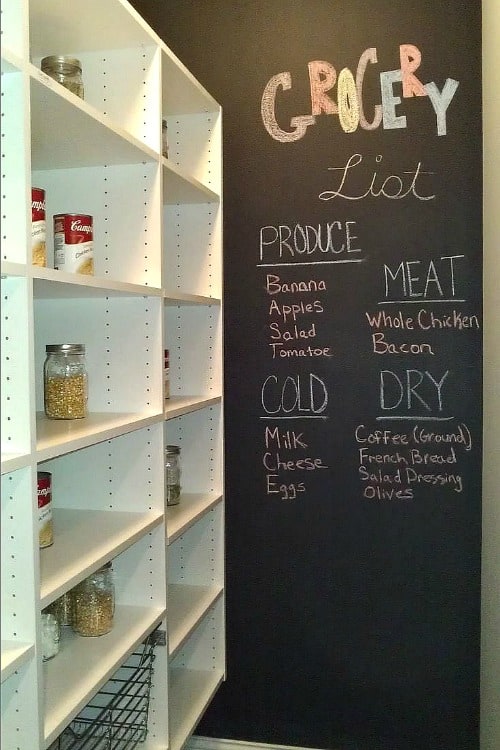 GROCERY
List
PRODUCE
Banana
Apples
Salad
Tomatoe
MEAT
Whole Chicken
Bacon
COLD
Milk
Cheese
Eggs
DRY
Coffee (Ground)
French Bread
Salad Dressing
Olives